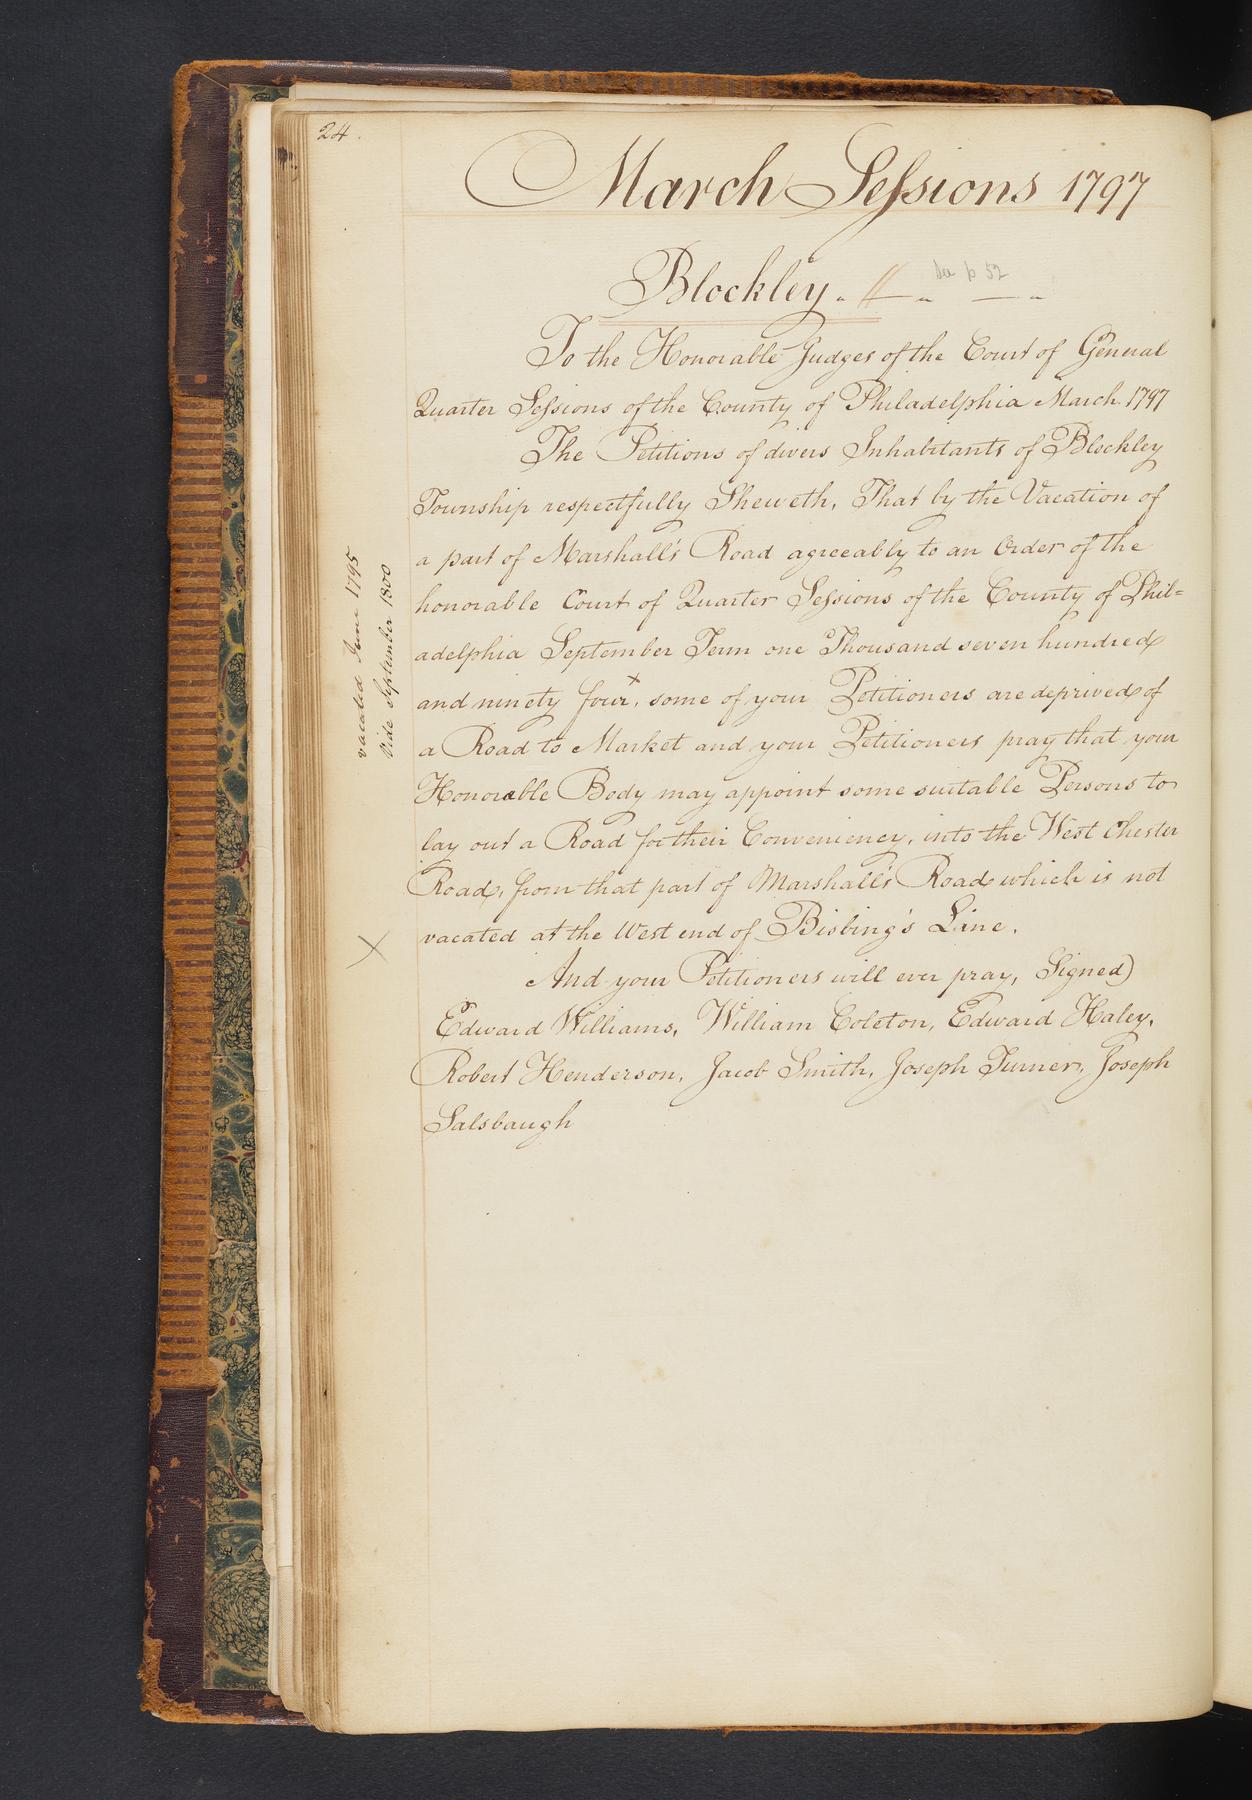 24.
March Sessions 1797
Blockley
See p 52
To the Honorable Judges of the Court of General
Quarter Sessions of the County of Philadelphia March 1797
The Petitions of divers Inhabitants of Blockley
Township respectfully Sheweth, That by the Vacation of
a part of Marshall's Road agreeably to an Order of the
honorable Court of Quarter Sessions of the County of Phil=
adelphia September Term one Thousand seven hundred
and ninety four,x some of your Petitioners are deprived of
a Road to Market and your Petitioners pray that your
Honorable Body may appoint some suitable Persons to
lay out a Road for their Conveniency, into the West Chester
Road, from that part of Marshall's Road which is not
vacated at the West end of Bisbing's Line.
And your Petitioners will ever pray, Signed)
Edward Williams, William Coleton, Edward Haley,
Robert Henderson, Jacob Smith, Joseph Turner, Joseph
Salsbaugh
vacated June 1795
Vide September 1800
X